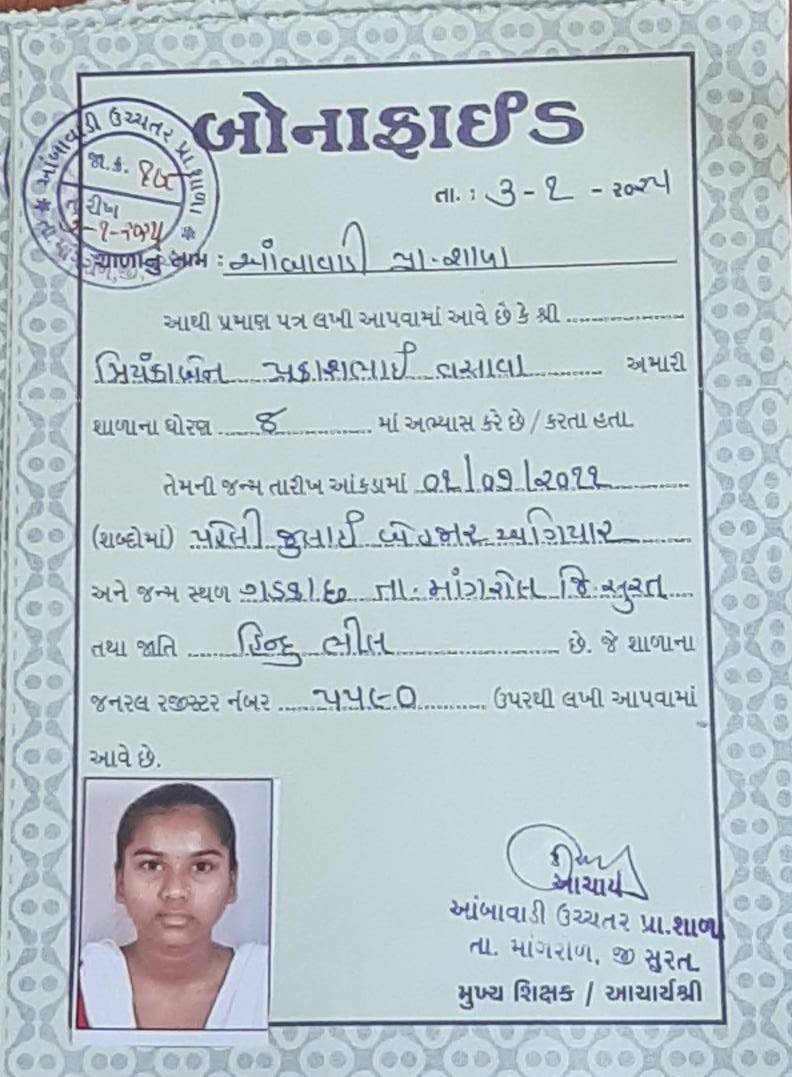 બોનાફાઈડ
આંબાવાડી ઉચ્ચતર પ્રા.શાળા
જા.ક્ર.
તારીખ
૩-૧-૨૦૨૫
તા. : ૩ - ૧ - ૨૦૨૫
શાળાનું નામ : આંબાવાડી પ્રા.શાળા
આથી પ્રમાણ પત્ર લખી આપવામાં આવે છે કે શ્રી
પ્રિયંકાબેન પ્રકાશભાઈ વસાવા અમારી
શાળાના ધોરણ ૭ માં અભ્યાસ કરે છે / કરતા હતા
તેમની જન્મ તારીખ આંકડામાં ૦૧/૦૭/૨૦૧૧
(શબ્દોમાં) પહેલી જુલાઈ બેહજાર અગિયાર
અને જન્મ સ્થળ તા. માંગરોલ જિ. સુરત
તથા જાતિ હિન્દુ ભીલ છે. જે શાળાના
જનરલ રજીસ્ટર નંબર ૫૫૯૦ ઉપરથી લખી આપવામાં
આવે છે.
આચાર્ય
આંબાવાડી ઉચ્ચતર પ્રા.શાળા
તા. માંગરોળ, જી સુરત
મુખ્ય શિક્ષક / આચાર્યશ્રી